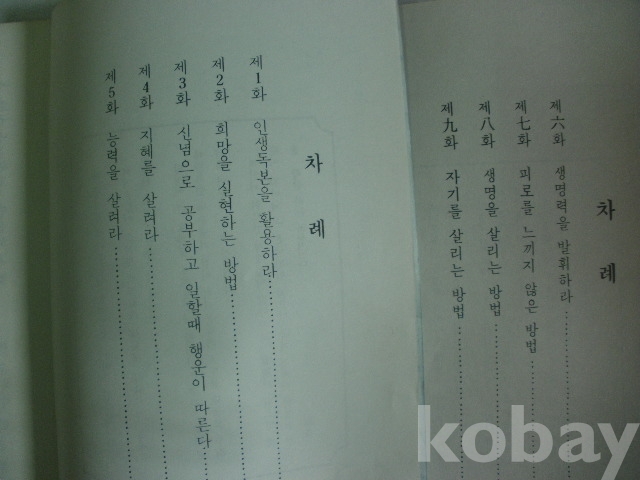 차례
제1화 인생독본을 활용하라
제2화 희망을 실현하는 방법
제3화 신념으로 공부하고 일할때 행운이 따른다
제4화 지혜를 살려라
제5화 능력을 살려라
차례
제六화 생명력을 발휘하라
제七화 피로를 느끼지 않은 방법
제八화 생명을 살리는 방법
제九화 자기를 살리는 방법
kobay